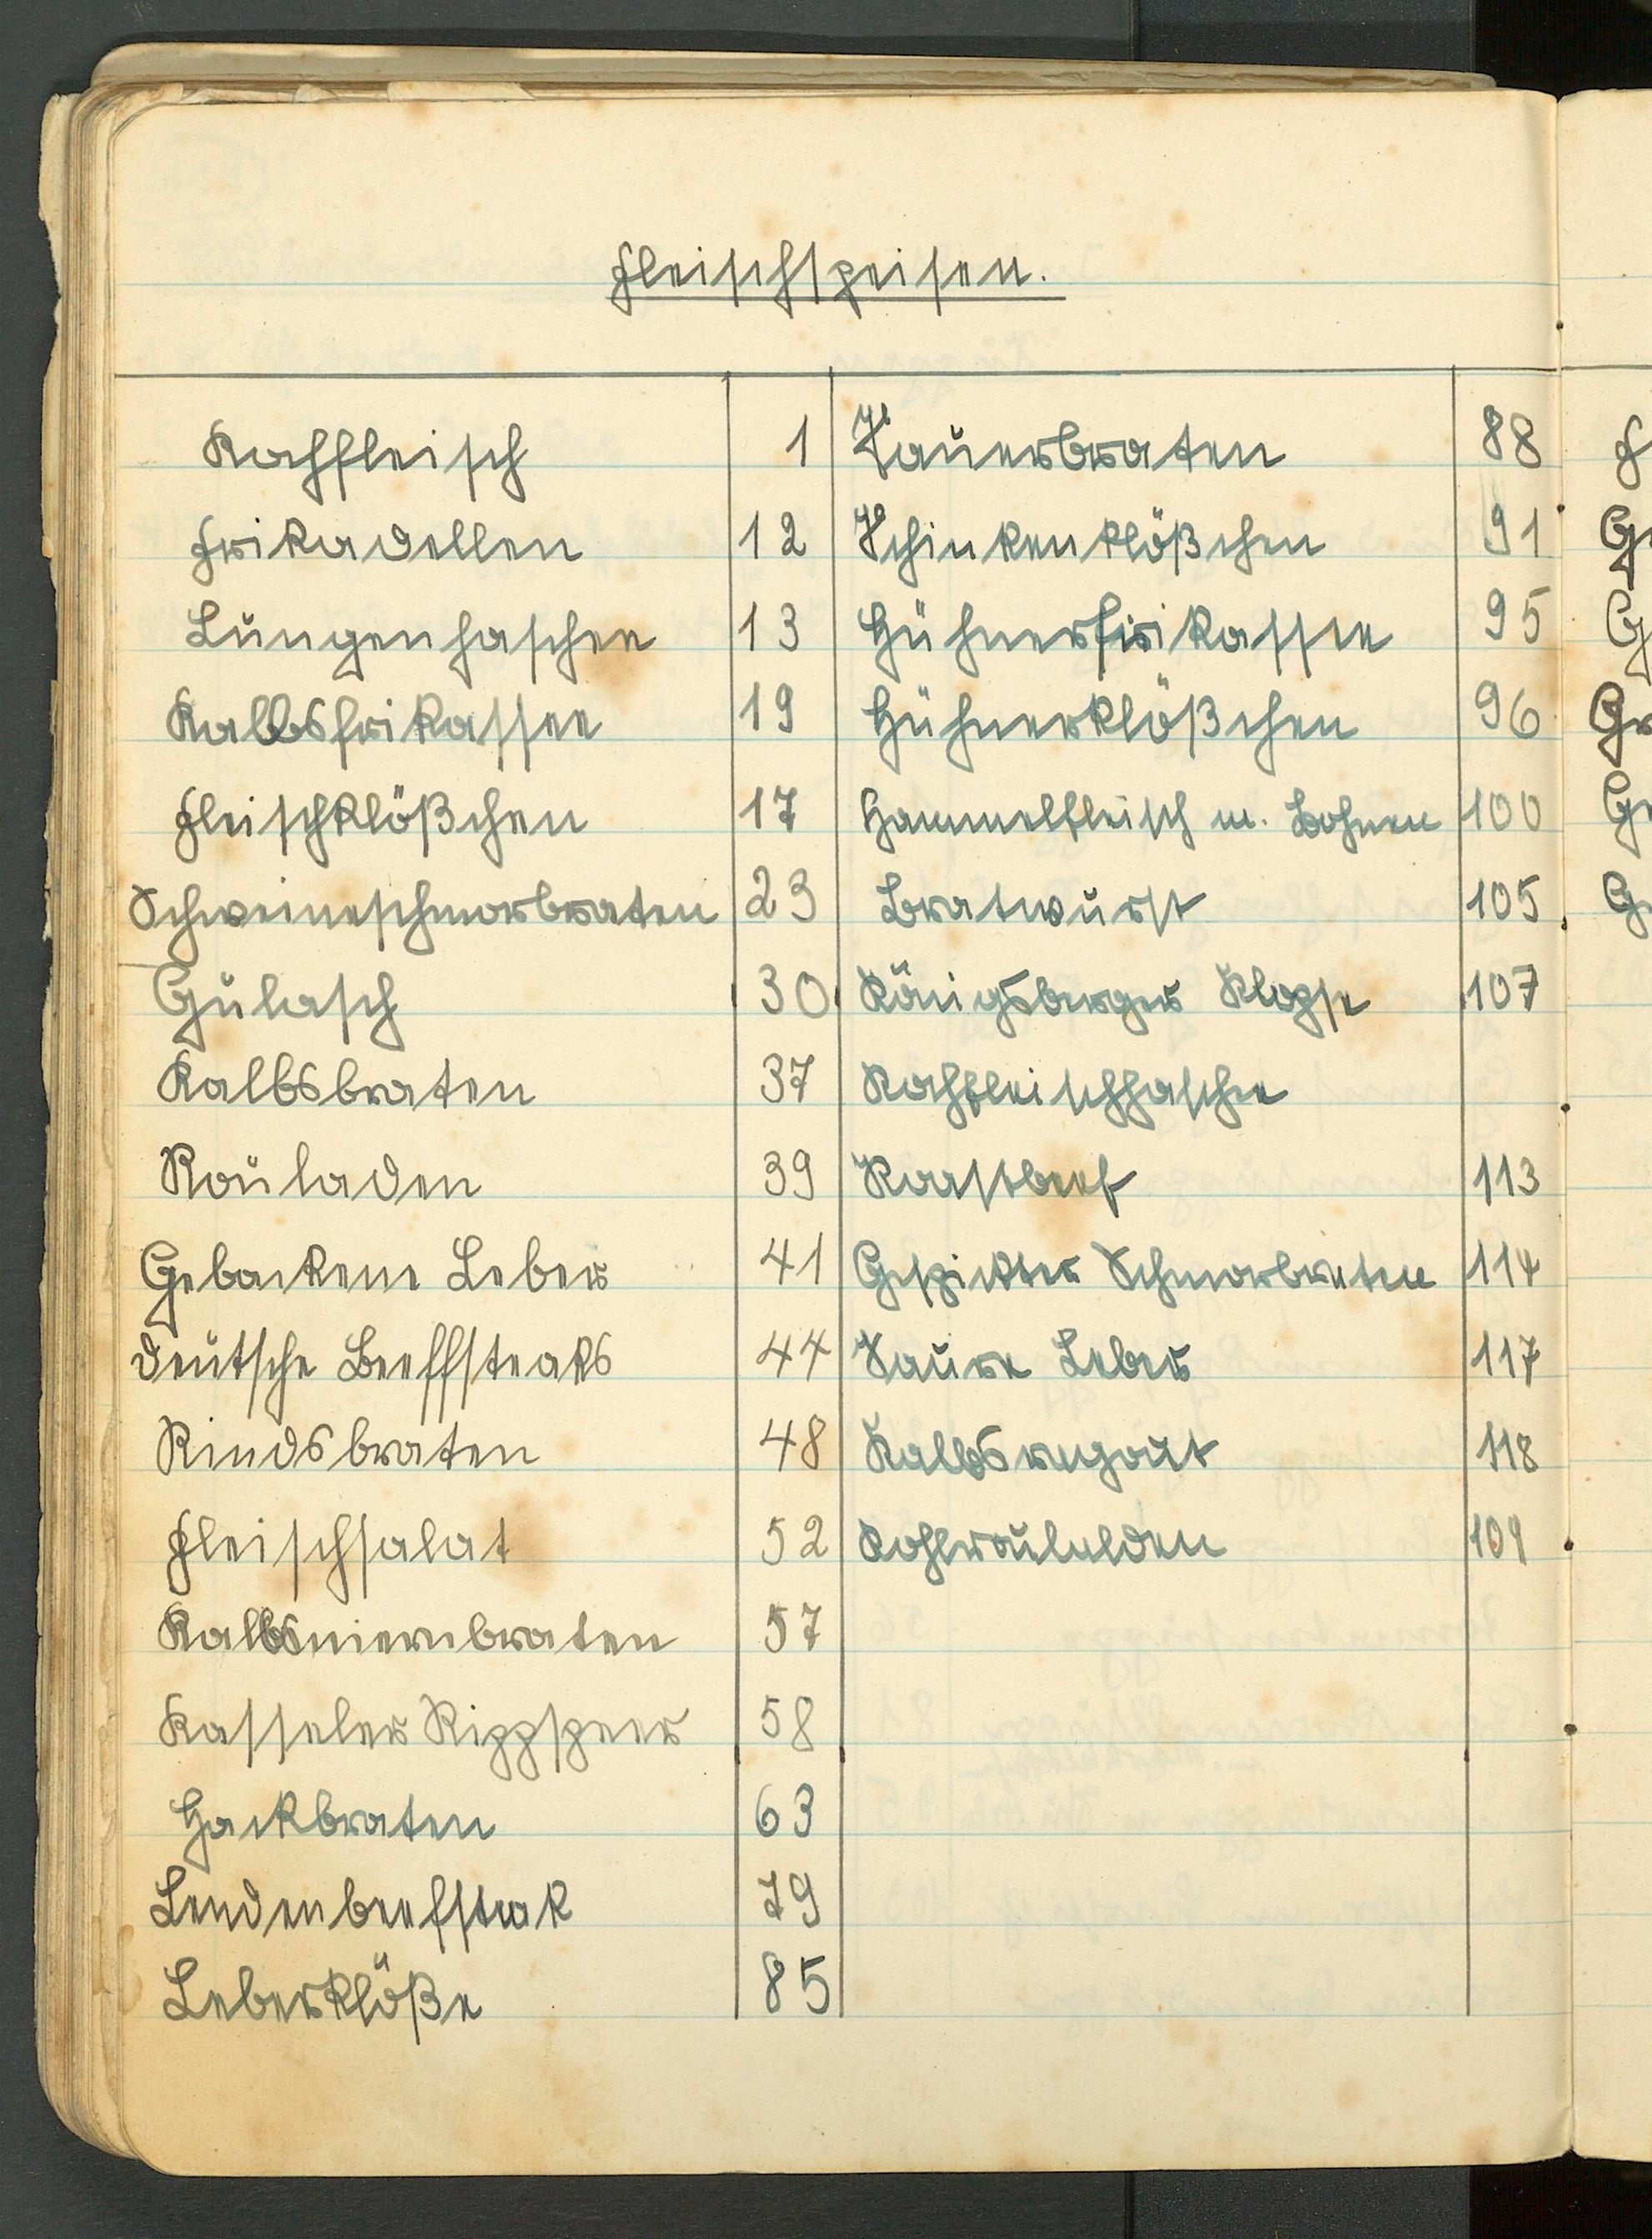 Fleischspeisen.
Kochfleisch 1
Frikadellen 12
Lungenhaschee 13
Kalbsfrikassee 19
Fleischklößchen 17
Schweineschmorbraten 23
Gulasch 30
Kalbsbraten 37
Rouladen 39
Gebackene Leber 41
Deutsche Beeffsteaks 44
Rindsbraten 48
Fleischsalat 52
Kalbsniernbraten 57
Kasseler Rippspeer 58
Hackbraten 63
Lendenbeefsteak 79
Leberklöße 85
Sauerbraten 88
Schinkenklößchen 91
Hühnerfrikassee 95
Hühnerklößchen 96
Hammelfleisch m. Bohnen 100
Bratwurst 105
Königsberger Klopse 107
Kochfleischhaschee
Roastbeef 113
Gespickter Schmorbraten 114
Saure Leber 117
Kalbsragout 118
Kohlroulalden 109